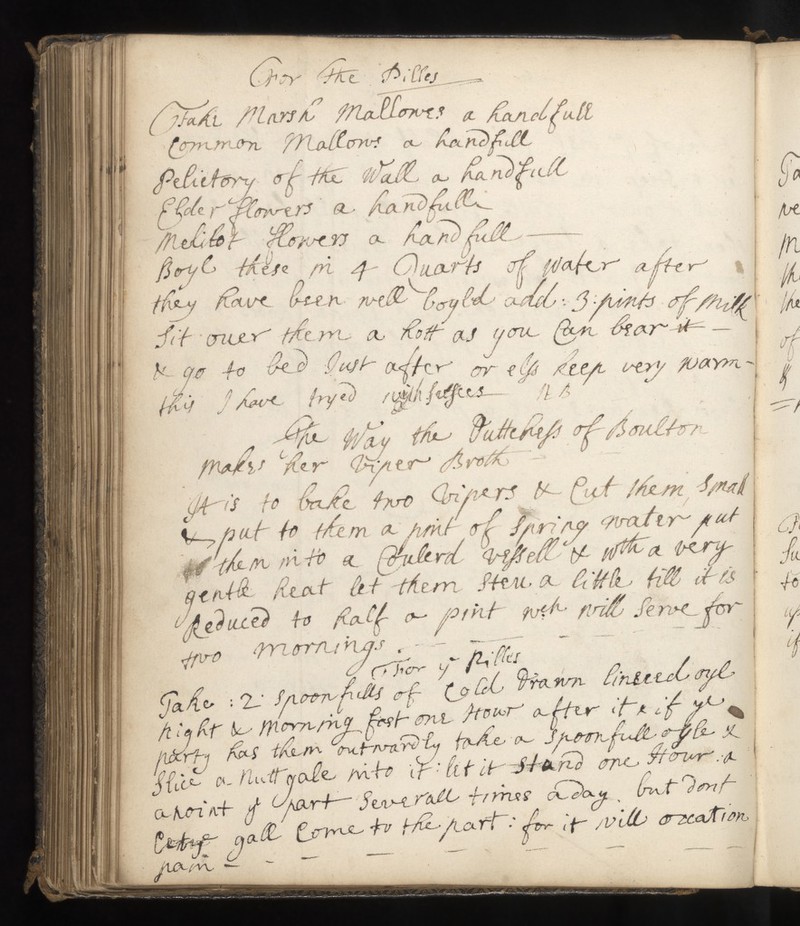 For the Pilles
Take Marsh Mallowes a handfull
Common Mallows a handfull
Pelietory of the Wall a handfull
Elder flowers a handfull
Melilot flowers a handfull
Boyl these in 4 Quarts of water after
they have been well boyld add : 3 : pints of Milk
Sit ouer them a hott as you Can bear it
& go to bed Just after or elss keep very warm
this I have tryed with
The Way the Duttchess of Boulton
makes her Viper Broth
It is to bake two Vipers & Cut them Small
& put to them a pint of Spring water put
them into a Coulerd vessell & wth a very
gentle heat let them Steu a little till it is
Reduced to half a pint wch will Serve for
two mornings .
For ye Pilles
Take : 2 : Spoonfulls of Cold Drawn linseed oyl
Night & Morning fast one Hour after it & if ye
party has them outwardly take a Spoonfull oyle &
Slice a Nuttgale into it : let it Stand one Hour : a
anoint ye part Severall times a day . but Dont
gall Come to the part : for it will occation
pain
Ta
we
M
th
the
of
&
Su
to
up
if